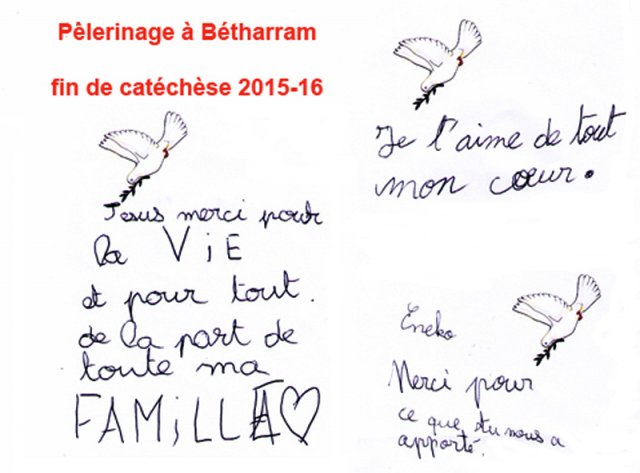 Pèlerinage à Bétharram
fin de catéchèse 2015-16
Jesus merci pour
la ViE
et pour tout.
de la part de
toute ma
FAMiLLE
Je t'aime de tout
mon cœur.
Eneko
Merci pour
ce que tu nous a
apporté.